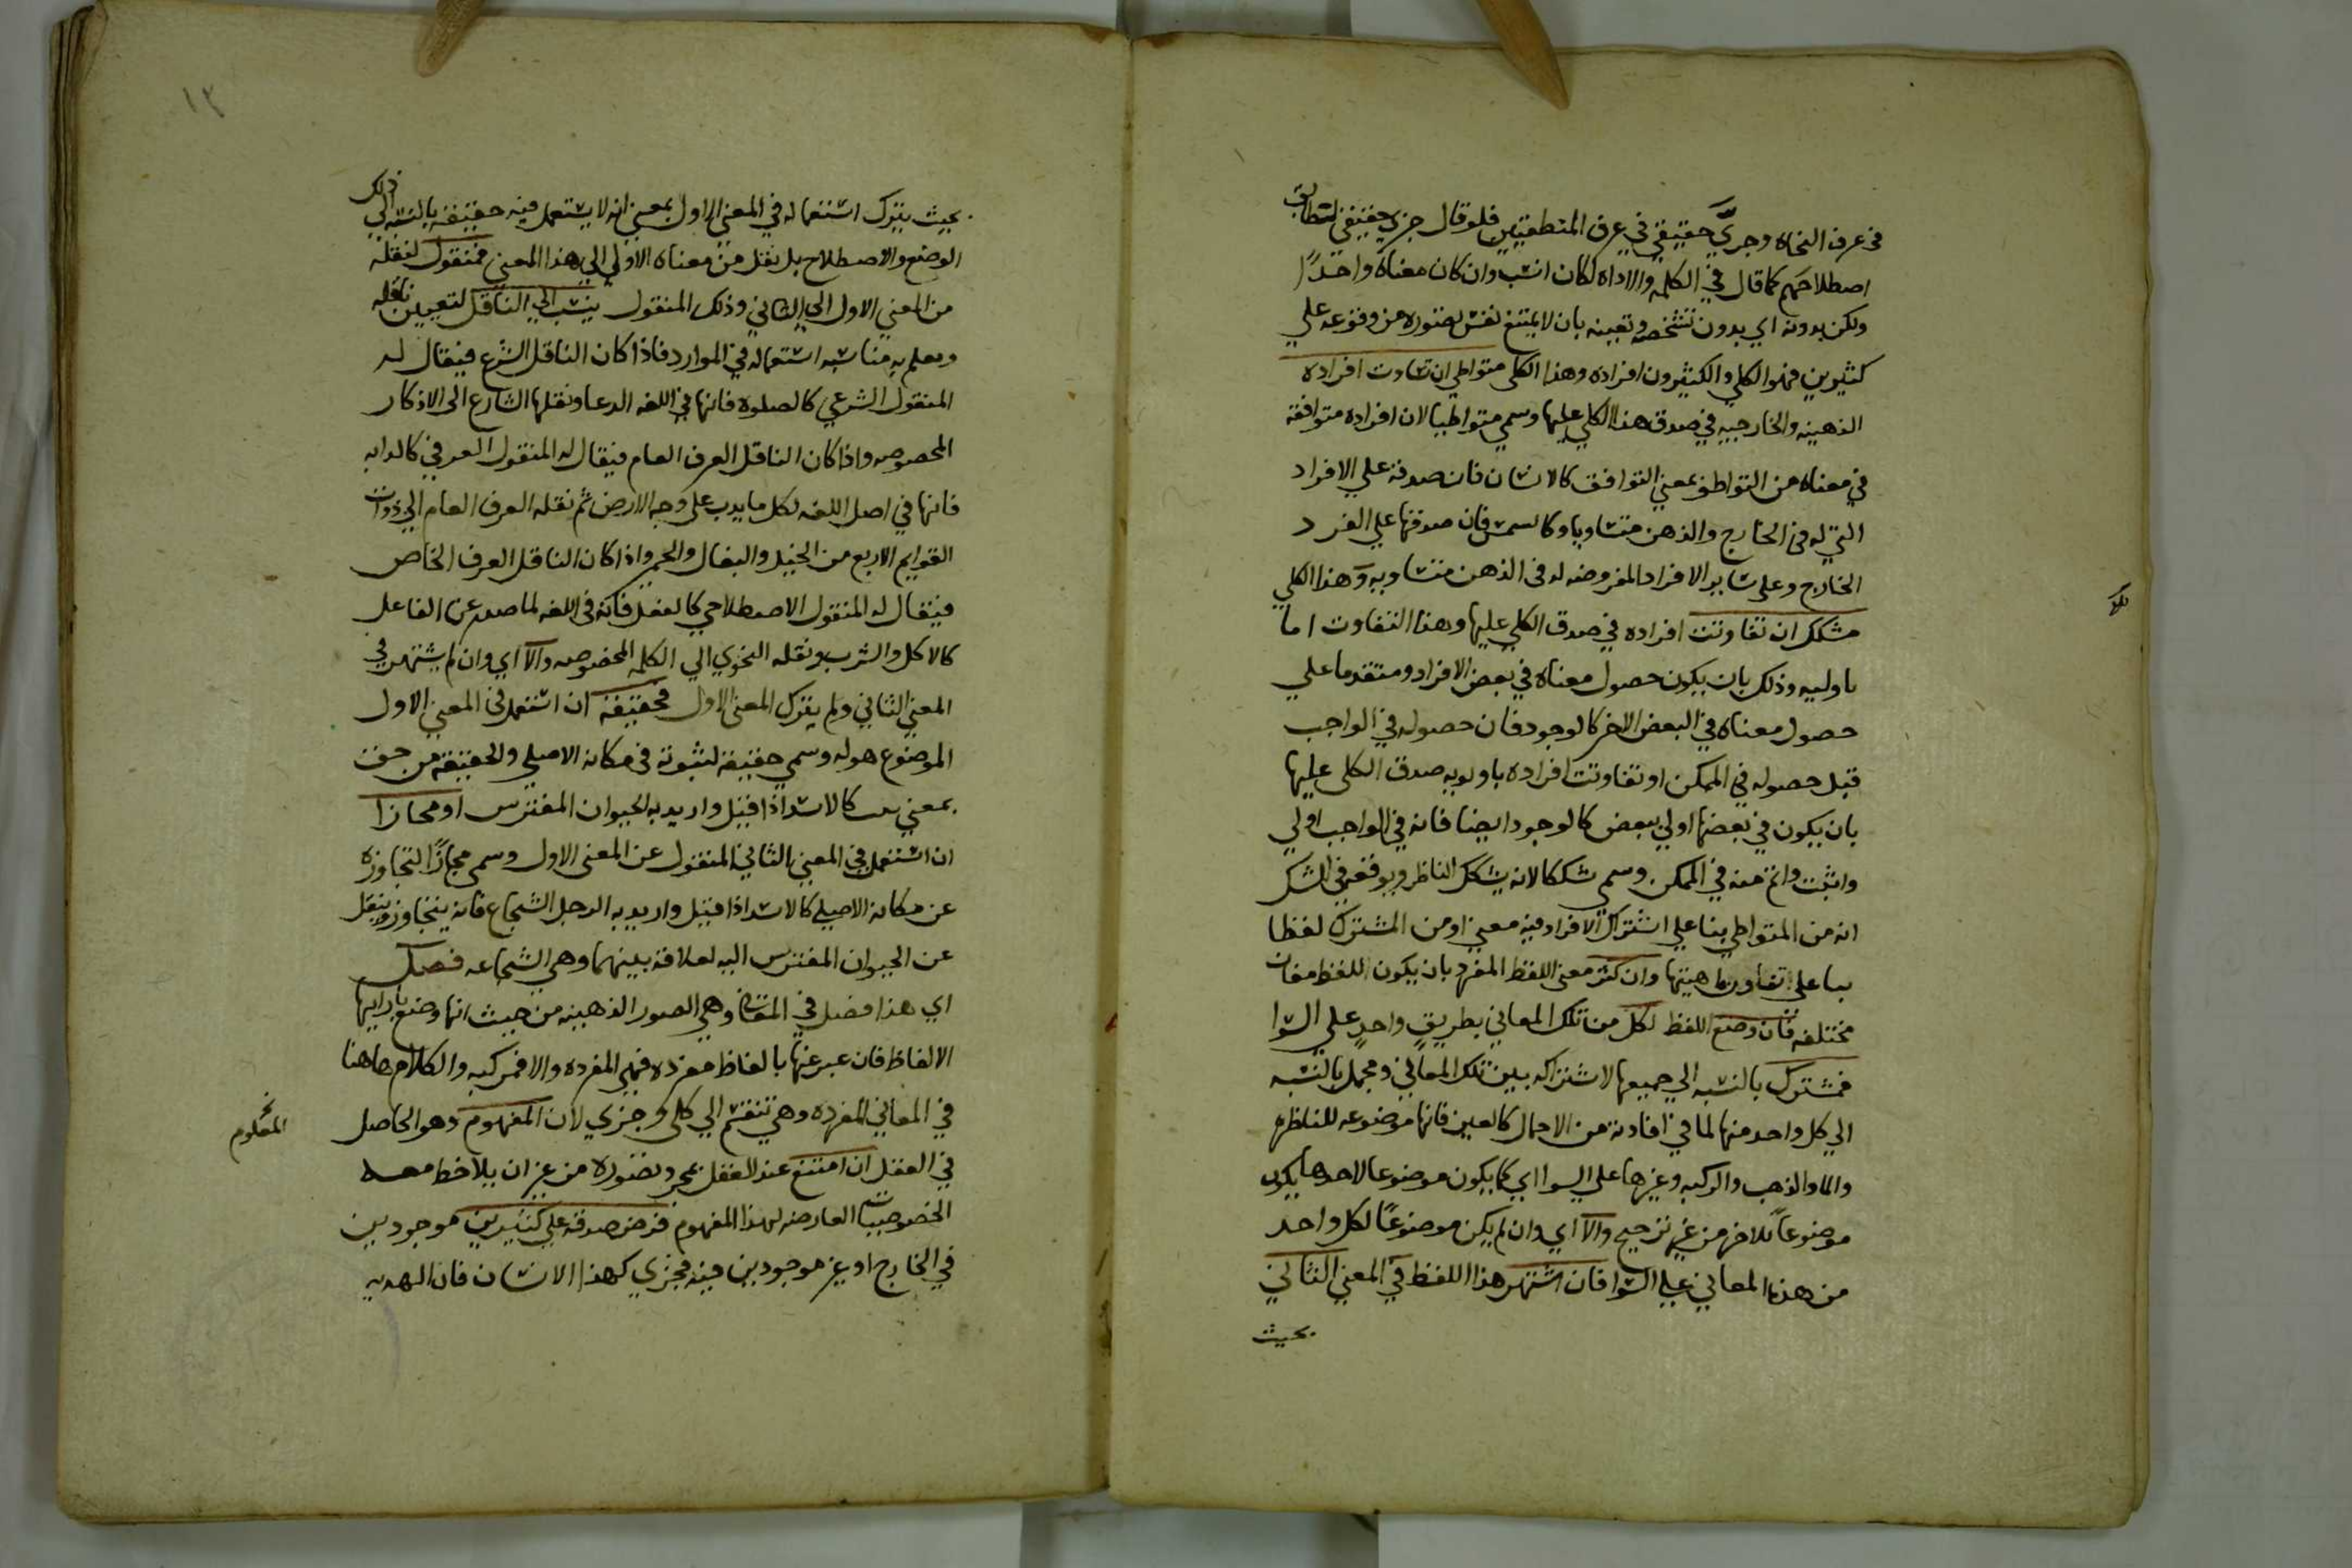 في عرف النحاه وجزيّ حقيقي في عرف المنطقيين فلو قال جزي حقيقي لتطابق
اصطلاحهم كما قال في الكلمه والاداه لكان انسب وان كان معناه واحدًا
ولكن بدونه اي بدون تشخصه وتعينه بان لا يمتنع نفس تصوره من وقوعه علي
كثيرين فهو الكلي والكثيرون افراده وهذا الكلي متواطي ان تساوت افراده
الذهنيه والخارجيه في صدق هذا الكلي عليها وسمي متواطيا لان افراده متوافقة
في معناه من التواطؤ بمعني التوافق كالانسان فان صدقه علي الافراد
التي له في الخارج والذهن متساويا وكالشمس فان صدقها علي الفرد
الخارج وعلي ساير الافراد المفروضه له في الذهن متساويه وهذا الكلي
مشكك ان تفاوتت افراده في صدق الكلي عليها وهذا التفاوت اما
باوليه وذلك بان يكون حصول معناه في بعض الافراد ومتقدما علي
حصول معناه في البعض الاخر كالوجود فان حصوله في الواجب
قبل حصوله في الممكن او تفاوتت افراده باولويه صدق الكلي عليها
بان يكون في بعضها اولي ببعض كالوجود ايضا فانه في الواجب اولي
واثبت واتم منه في الممكن وسمي شككا لانه يشكك الناظر ويوقعه في الشك
انه من المتواطي بنا علي اشتراك الافراد فيه معني او من المشترك لفظا
بنا علي تفاوت ماهيتها وان كثر معني اللفظ المفرد بان يكون اللفظ معان
مختلفه فان وضع اللفظ لكل من تلك المعاني بطريقٍ واحدٍ علي السوا
فمشترك بالنسبه الي جميعها لاشتراكه بين تلك المعاني ومجمل بالنسبه
الي كل واحد منها لما في افادته من الاجمال كالعين فانها موضوعه للناظره
والما والذهب والركبه وغيرها علي السوا اي كما يكون موضوعا لاحدها يكون
موضوعاً للاخر من غير ترجيح والا اي وان لم يكن موضوعًا لكل واحد
من هذه المعاني علي السوا فان اشتهر هذا اللفظ في المعني الثاني
بحيث
١٢
بحيث يترك استعماله في المعني الاول بمعني انه لا يستعمل فيه حقيقة بالنسبه الي ذلك
الوضع والاصطلاح بل ينقل من معناه الاولي الي هذا المعني فمنقول لنقله
من المعني الاول الي الثاني وذلك المنقول ينسب الي الناقل لتعيين ناقله
ويعلم به مناسبه استعماله في الموارد فاذا كان الناقل الشرع فيقال له
المنقول الشرعي كالصلوه فانها في اللغه الدعا ونقلها الشارع الي الاذكار
المخصوصه واذا كان الناقل العرف العام فيقال له المنقول العرفي كالدابه
فانها في اصل اللغه لكل ما يدب علي وجه الارض ثم نقله العرف العام الي ذوات
القوايم الاربع من الخيل والبغال والحمر واذا كان الناقل العرف الخاص
فيقال له المنقول الاصطلاحي كالفعل فانه في اللغه لما صدر عن الفاعل
كالاكل والشرب ونقله النحوي الي الكلمه المخصوصه والا اي وان لم يشتهر في
المعني الثاني ولم يترك المعني الاول فحقيقة ان استعمل في المعني الاول
الموضوع هو له وسمي حقيقة لثبوته في مكانه الاصلي والحقيقة من حق
بمعني كالاسد اذا قيل واريد به الحيوان المفترس او مجازا
ان استعمل في المعني الثاني المنقول عن المعني الاول وسمي مجازًا لتجاوزه
عن مكانه الاصلي كالاسد اذا قيل واريد به الرجل الشجاع فانه يتجاوز وينقل
عن الحيوان المفترس اليه لعلاقة بينهما وهي الشجاعه فصل
اي هذا فصل في المعاني وهي الصور الذهنيه من حيث انها وضع بازايها
الالفاظ فان عبر عنها بالفاظ مفرده فهي المفرده والا فمركبه والكلام هاهنا
في المعاني المفرده وهي تنقسم الي كلي وجزي لان المفهوم وهو الحاصل
المعلوم
في العقل ان امتنع عند العقل بمجرد تصوره من غير ان يلاحظ معه
الخصوصيات العارضه لهذا المفهوم فرض صدقه علي كثيرين موجودين
في الخارج او غير موجودين فيه فجزي كهذا الانسان فان الهذيه